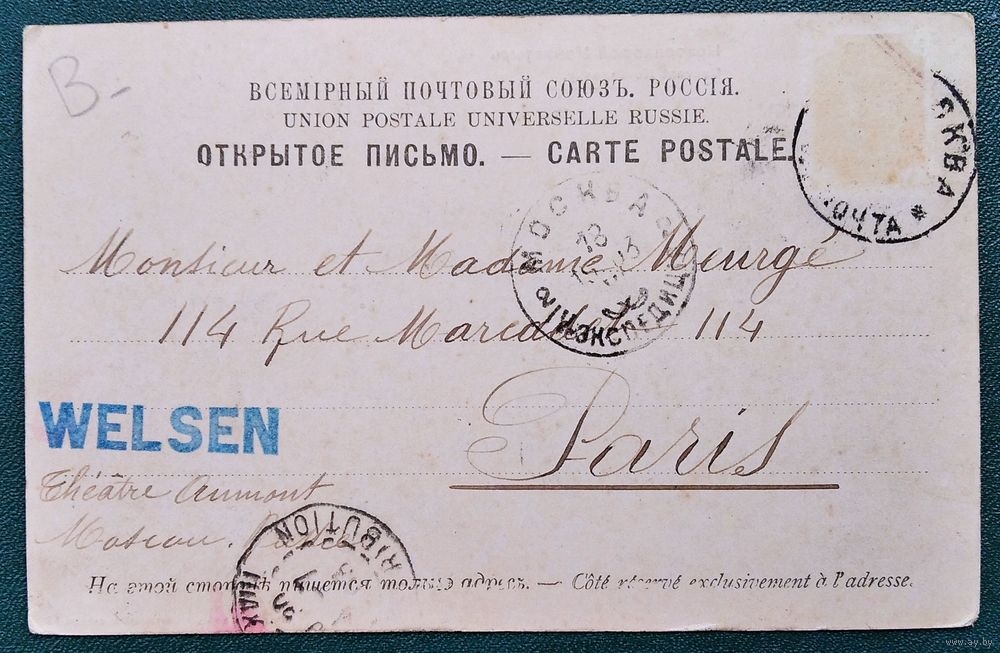 B-
ВСЕМІРНЫЙ ПОЧТОВЫЙ СОЮЗЪ. РОССІЯ.
UNION POSTALE UNIVERSELLE RUSSIE.
ОТКРЫТОЕ ПИСЬМО. — CARTE POSTALE.
СКВА
ПОЧТА *
МОСКВА
18
ЭКСПЕДИЦ
Monsieur et Madame Meurgé
114 Rue 114
Paris
WELSEN
Théâtre Aumont
Moscou.
RIBUTION
На этой сторонѣ пишется только адресъ. — Côté réservé exclusivement à l'adresse.
www.ay.by